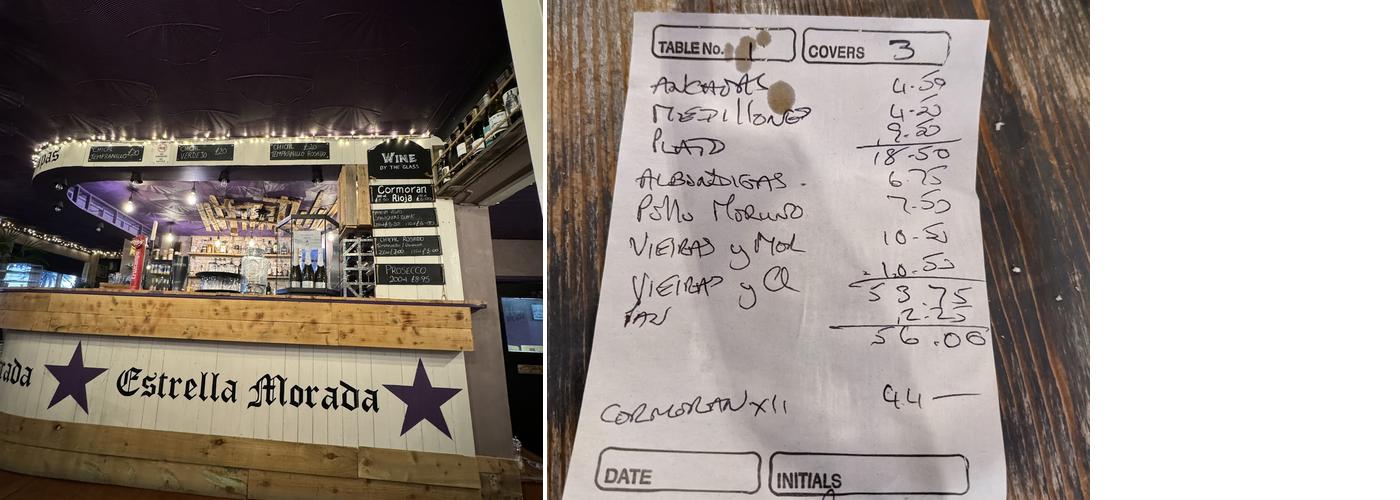 CHICAL £20
TEMPRANILLO
CHICAL £20
VERDEJO
CHICAL £20
TEMPRANILLO ROSADO
WINE
BY THE GLASS
Cormoran
Rioja
CHICAL ROSADO
PROSECCO
200ml £8.95
Estrella Morada
TABLE No. 1
COVERS 3
4.50
MEJILLONES 4.50
PLATO 9.50
18.50
ALBONDIGAS. 6.75
POLLO MORUNO 7.50
VIEIRAS y MOR 10.50
VIEIRAS y CH 10.50
53.75
PAN 2.25
56.00
CORMORAN XII 44—
DATE
INITIALS